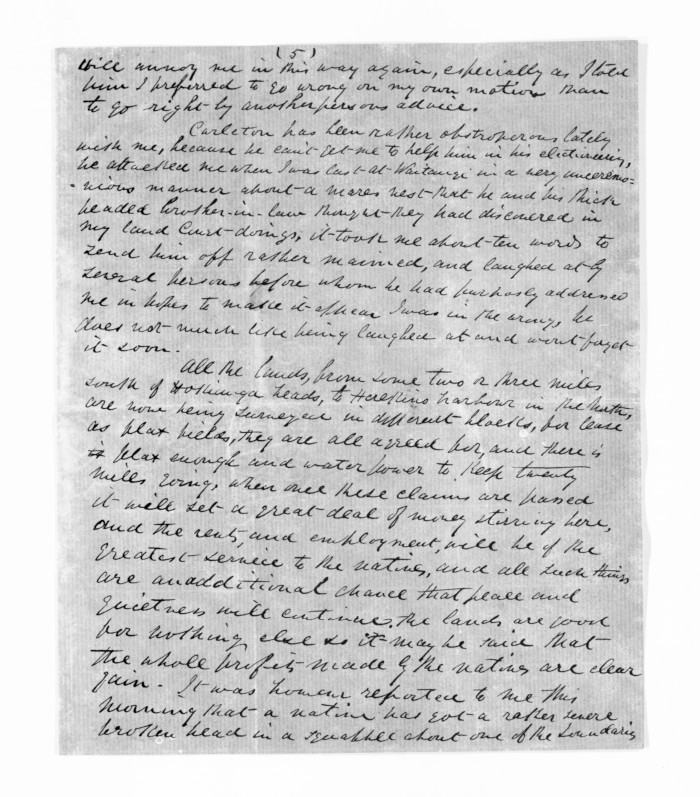 (5)
will annoy me in this way again, especially as I told
him I preferred to go wrong on my own motion than
to go right by another persons advice.
Carleton has been rather obstroporous lately
with me, because he can't get me to help him in his electioneering,
he attacked me when I was last at Waitangi in a very unceremo-
-nious manner about a mares nest that he and his thick
headed brother-in-law thought they had discovered in
my land Court doings, it took me about ten words to
send him off rather maimed, and laughed at by
several persons before whom he had purposly addressed
me in hopes to make it appear I was in the wrong, he
does not much like being laughed at and wont forget
it soon.
All the lands, from some two or three miles
south of Hokianga heads, to Herekino harbour in the North,
are now being surveyed in different blocks, for lease
as flax fields, they are all agreed for, and there is
flax enough and water power to keep twenty
mills going, when once these claims are passed
it will set a great deal of money stirring here,
and the rents, and employment, will be of the
greatest service to the natives, and all such things
are an additional chance that peace and
quietness will continue. the lands are good
for nothing else so it may be said that
the whole profits made by the natives are clear
gain. It was however reported to me this
morning that a native has got a rather severe
broken head in a squabble about one of the boundaries